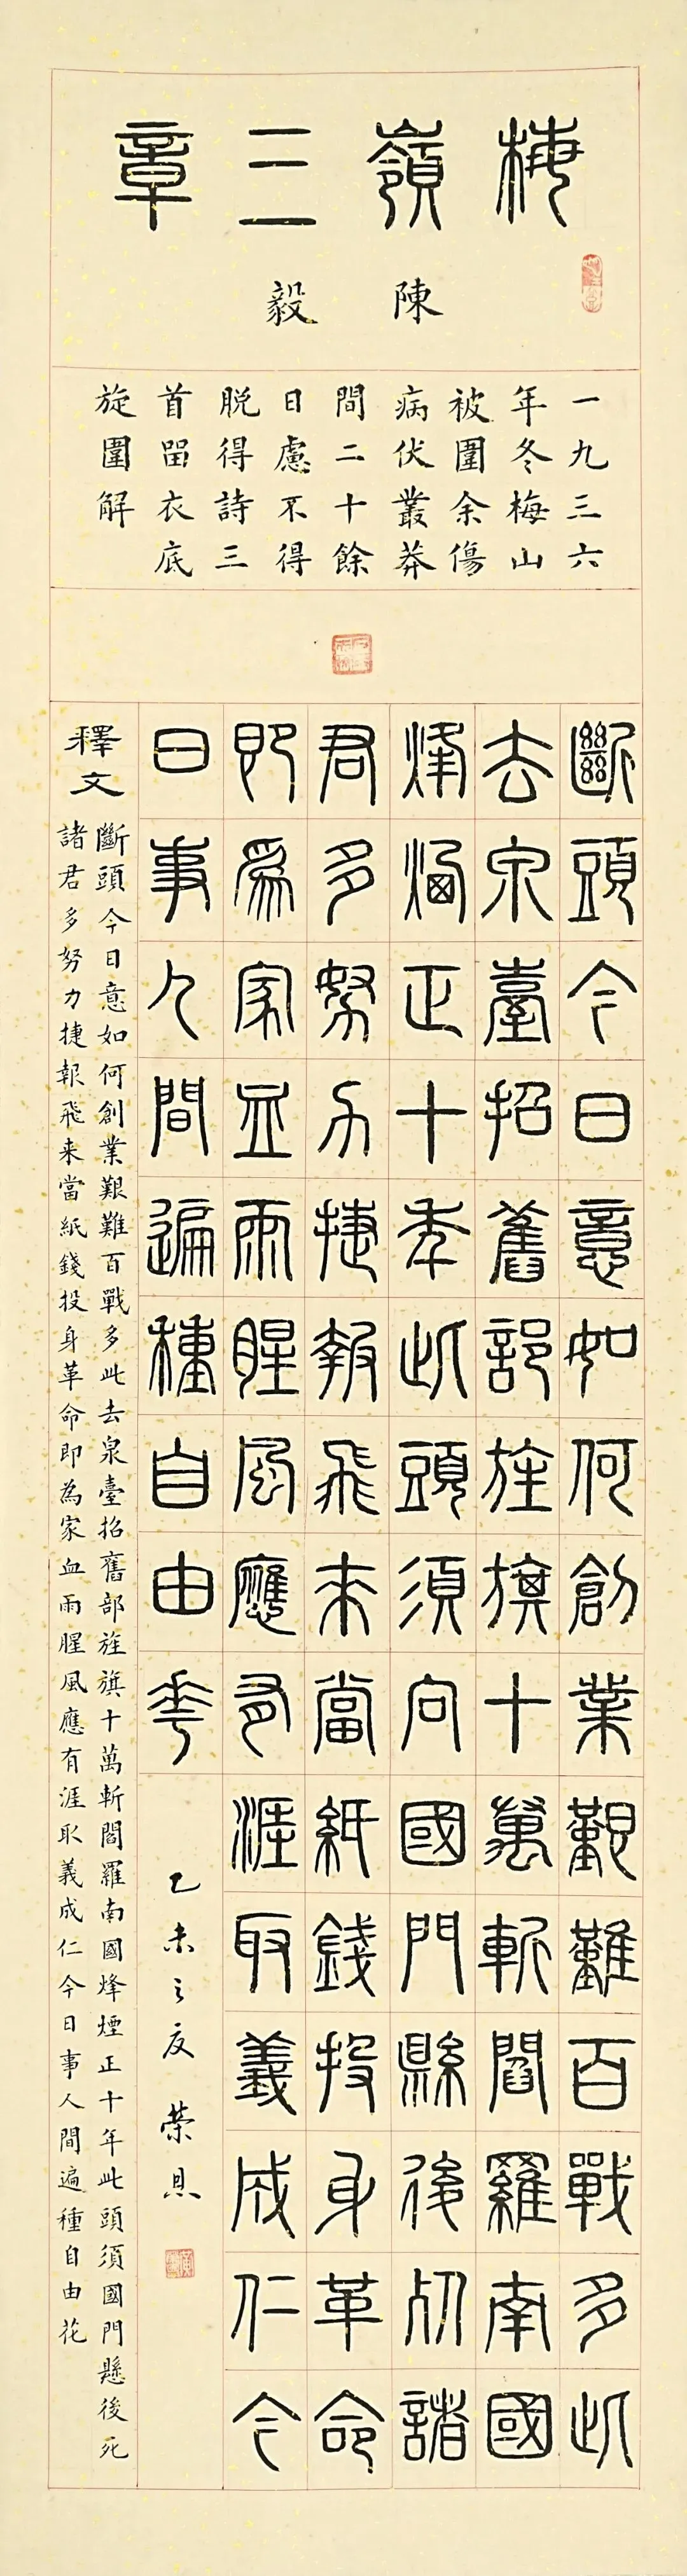 梅嶺三章
陳毅
一九三六
年冬梅山
被圍余傷
病伏叢莽
間二十餘
日慮不得
脫得詩三
首留衣底
旋圍解
斷頭今日意如何創業艱難百戰多此
去泉臺招舊部旌旗十萬斬閻羅南國
烽煙正十年此頭須向國門縣後死諸
君多努力捷報飛來當紙錢投身革命
即為家血雨腥風應有涯取義成仁今
日事人間遍種自由花
乙未之夏 榮
釋文
斷頭今日意如何創業艱難百戰多此去泉臺招舊部旌旗十萬斬閻羅南國烽煙正十年此頭須國門懸後死
諸君多努力捷報飛来當紙錢投身革命即為家血雨腥風應有涯取義成仁今日事人間遍種自由花